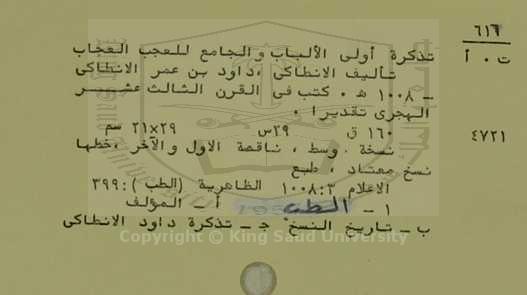 ٦١٦
ت ٠ أ
تذكرة أولى الألباب والجامع للعجب العجاب
تأليف الانطاكى ،داود بن عمر الانطاكى
ـ ١٠٠٨ هـ ٠ كتب فى القرن الثالث عشـــر
الهجرى تقديرا ٠
١٦٠ ق ٢٩س ٢٩×٢١ سم
٤٧٢١
نسخة وسط ، ناقصة الاول والآخر ،خطها
نسخ معتاد ، طبع
الاعلام ٣:١٠٠٨ الظاهرية (الطب):٣٩٩
١ ـ الطب أ ـ المؤلف
ب ـ تاريخ النسخ جـ ـ تذكرة داود الانطاكى
Copyright © King Saud University